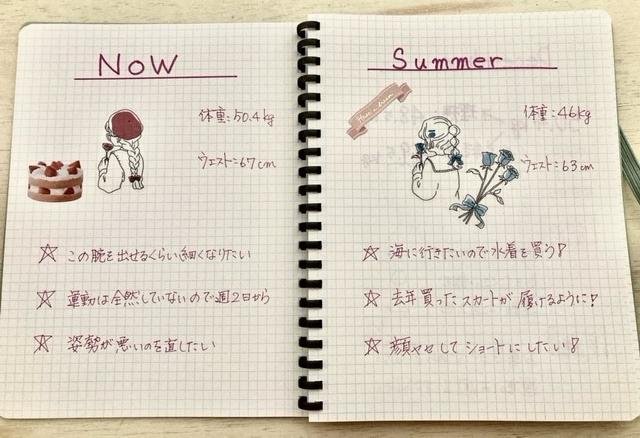 Now
体重:50.4kg
ウェスト:67cm
☆ この腕を出せるくらい細くなりたい
☆ 運動は全然していないので週2日から
☆ 姿勢が悪いのを直したい
Summer
体重:46kg
ウェスト:63cm
☆ 海に行きたいので水着を買う!
☆ 去年買ったスカートが履けるように!
☆ 顔ヤセしてショートにしたい!